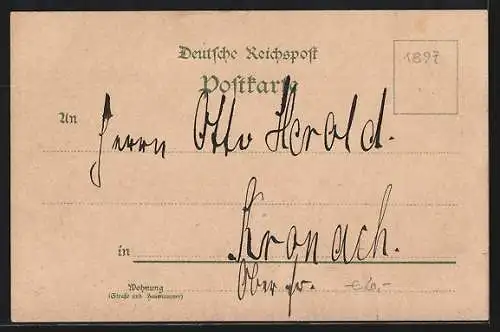 Deutsche Reichspost
1897
Postkarte
An Herrn Otto Herold.
in Kronach.
Wohnung Oberfr.
(Straße und Hausnummer)